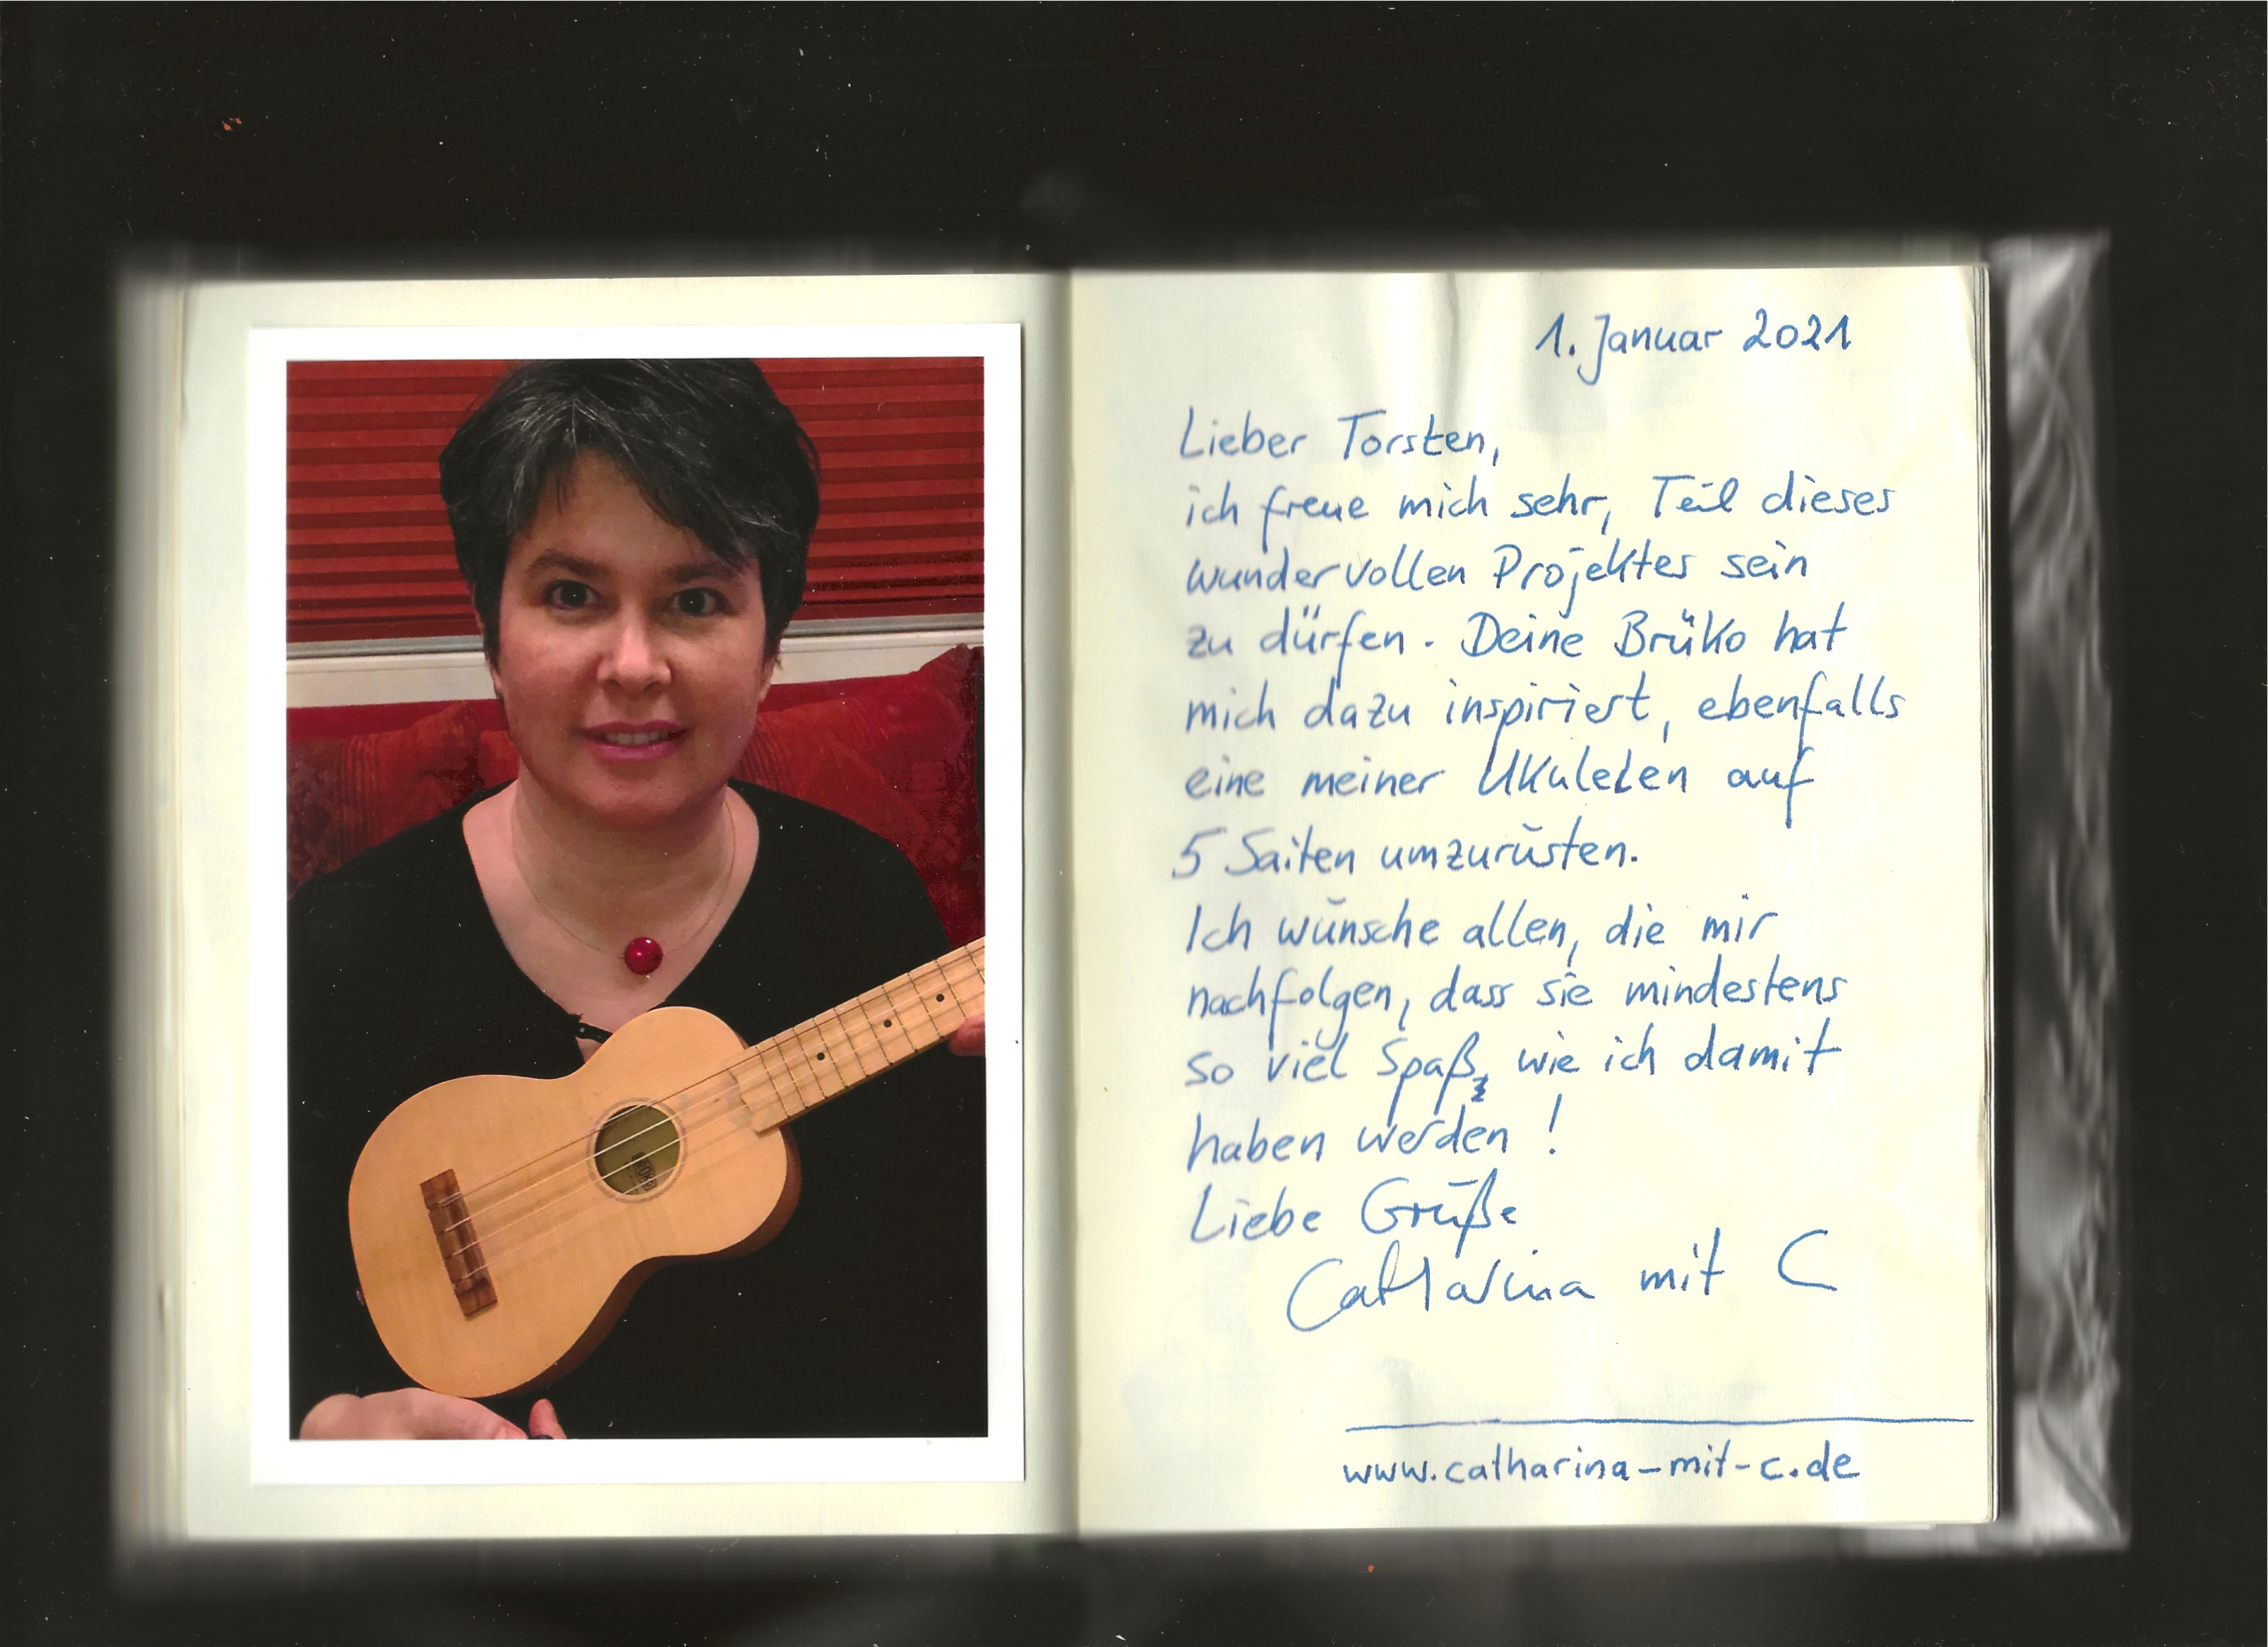 1. Januar 2021
Lieber Torsten,
ich freue mich sehr, Teil dieses
wundervollen Projektes sein
zu dürfen. Deine Brüko hat
mich dazu inspiriert, ebenfalls
eine meiner Ukulelen auf
5 Saiten umzurüsten.
Ich wünsche allen, die mir
nachfolgen, dass sie mindestens
so viel Spaß, wie ich damit
haben werden!
Liebe Grüße
Catharina mit C
www.catharina-mit-c.de